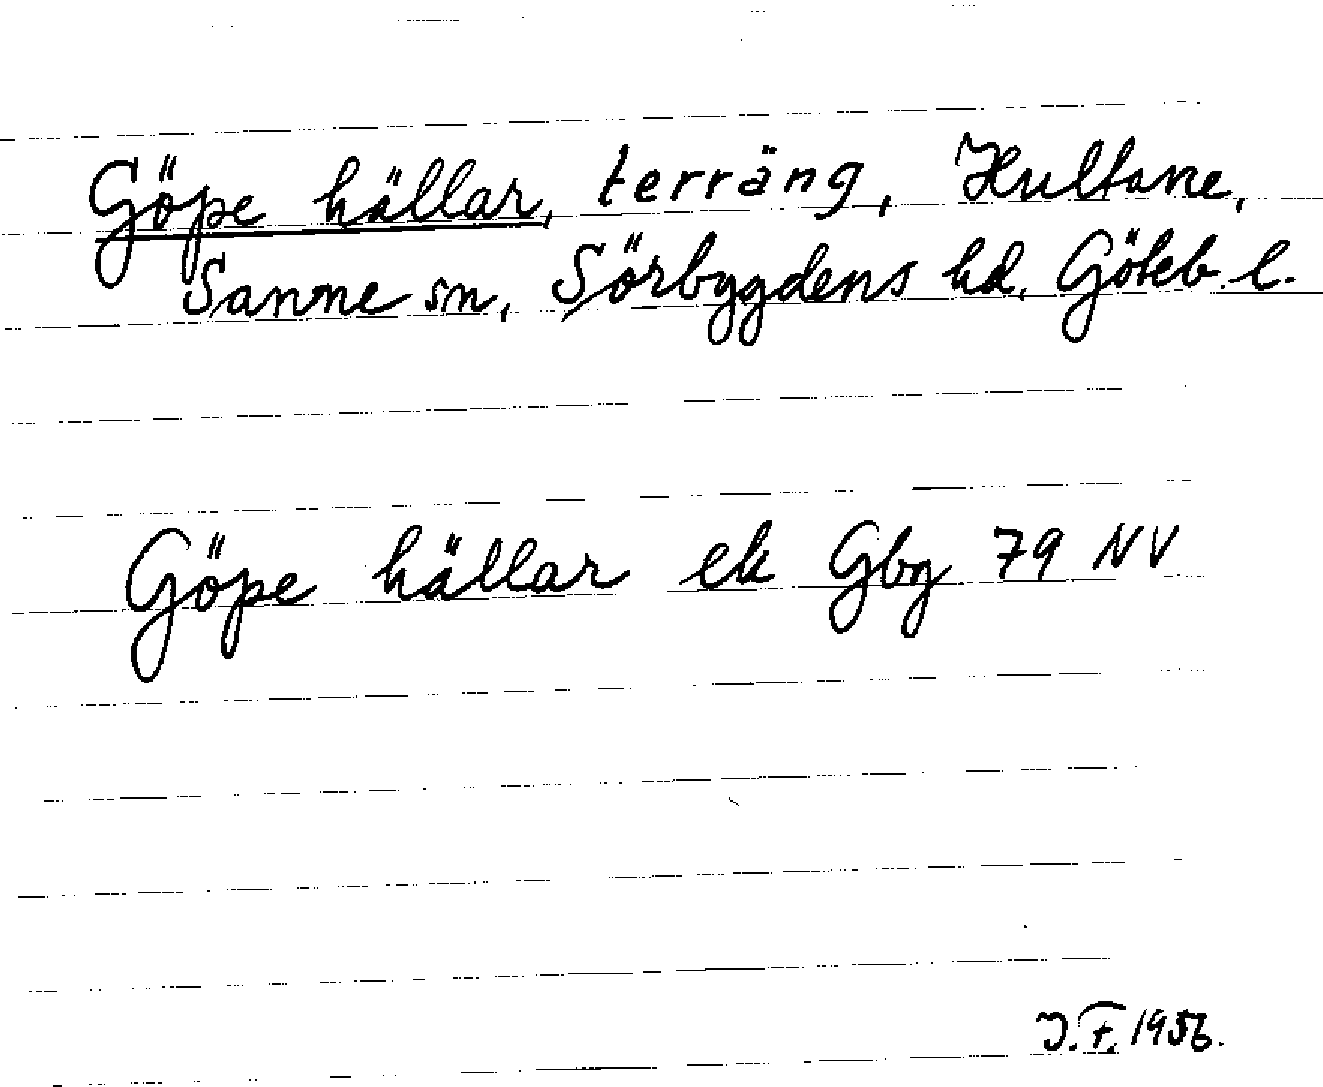 Göpe hällar, terräng, Hultane,
Sanne sn, Sörbygdens hd, Göteb. l.
Göpe hällar ek Gbg 79 NV
J.F. 1956.